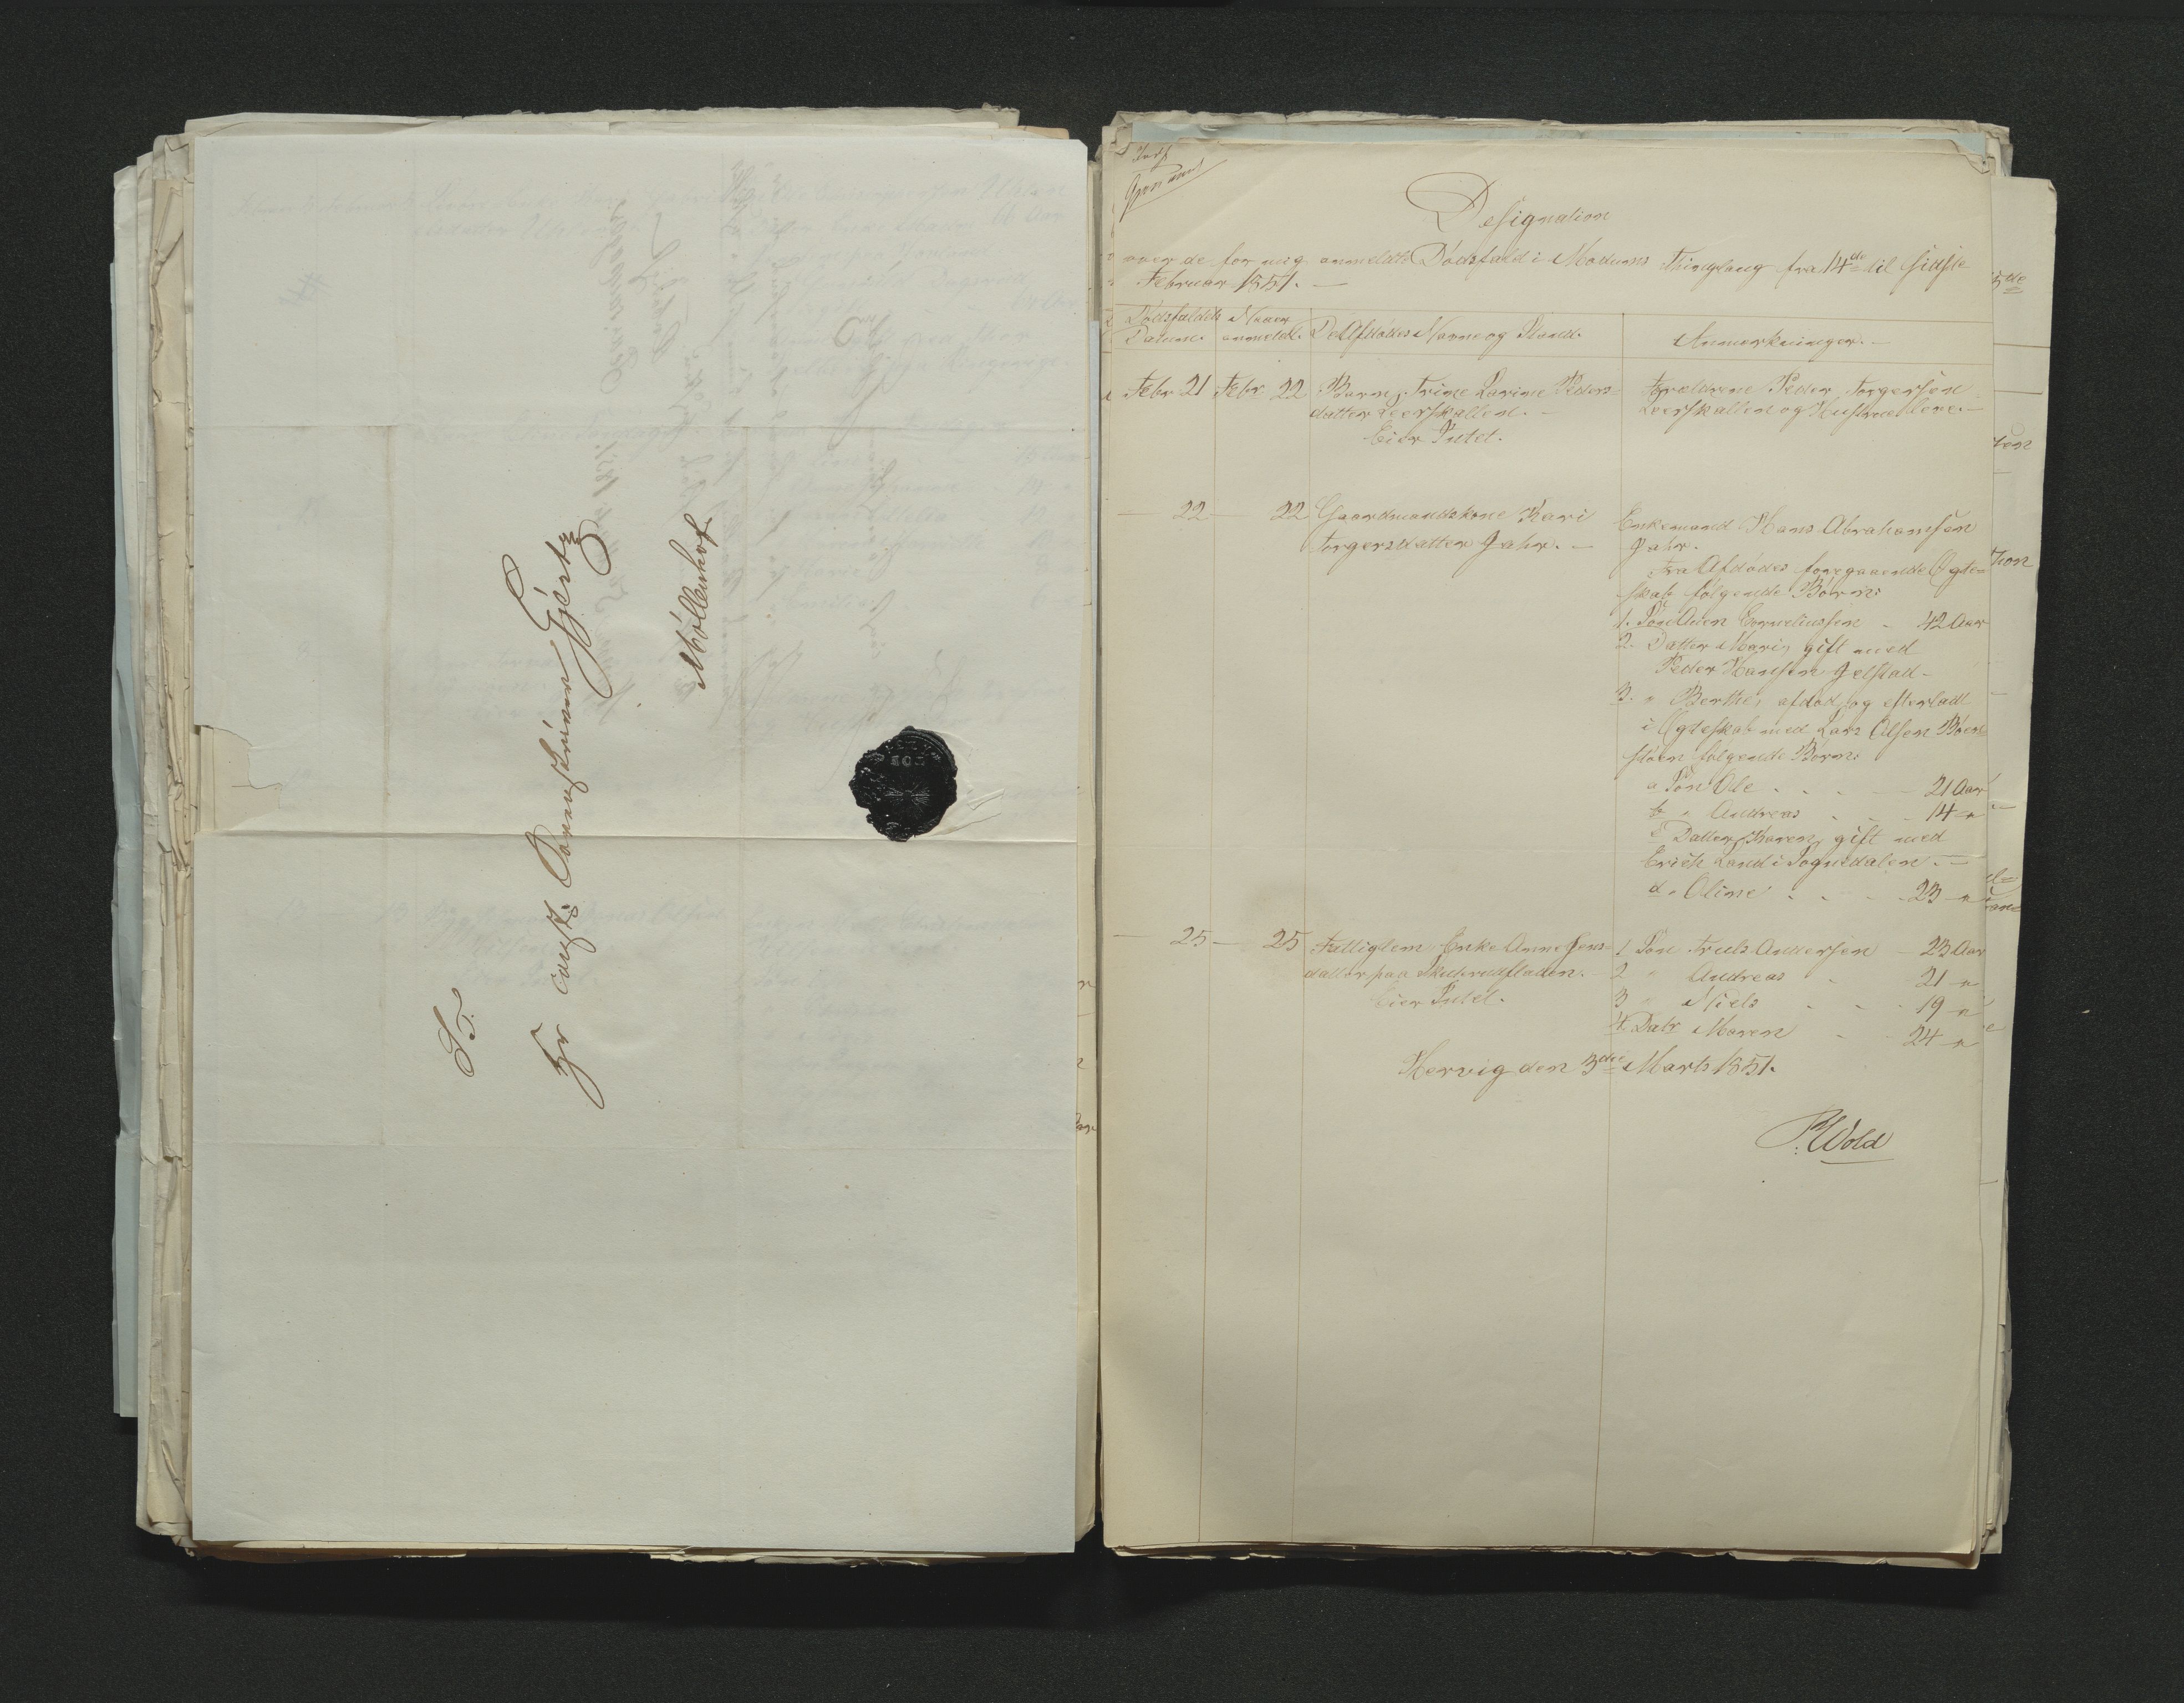 S. T.
Hr const: Sorenskriver Gjertz
Møllenhof.
Designation
over de for mig anmeldte Dødsfald i Modums Thinglaug fra 14de til sidste
Februar 1851. —
Dødsfaldets Datum.
Naar anmeldt.
De Afdødes Navne og Stand.
Anmerkninger. —
Febr 21 Febr 22 Barn, Trine Larine Peders-
datter Leerskallen. —
Eier Intet.
Forældrene Peder Torgersen
Leerskallen og Hustrue lever. —
— 22 — 22 Gaardmandskone Kari
Torgersdatter Jahr. —
Enkemand Hans Abrahamsen
Jahr.
Fra Afdødes foregaaende Ægte-
skab følgende Børn:
1. Søn Corneliussen - 42 Aar
2. Datter Mari, gift med
Peder Hansen Gelstad -
3. " Berthe, afdød og efterladt
i Ægteskab med Lars Olsen
følgende Børn:
a Søn Ole . . . — 21 Aar
b " Andreas . . . 14 — "
c Datter Karen, gift med
Erich Lond i Sognedalen. —
d " Oline . . . 23 — "
— 25 — 25 Fattiglem Enke Anne Jens-
datter paa
Eier Intet.
1 Søn Truls Andersen — 23 Aar
2 " Andreas - 21 — "
3 " Niels . . . 19 — "
4. Datr Maren - - 24 — "
Hervig den 3die Marts 1851.
P. Wold